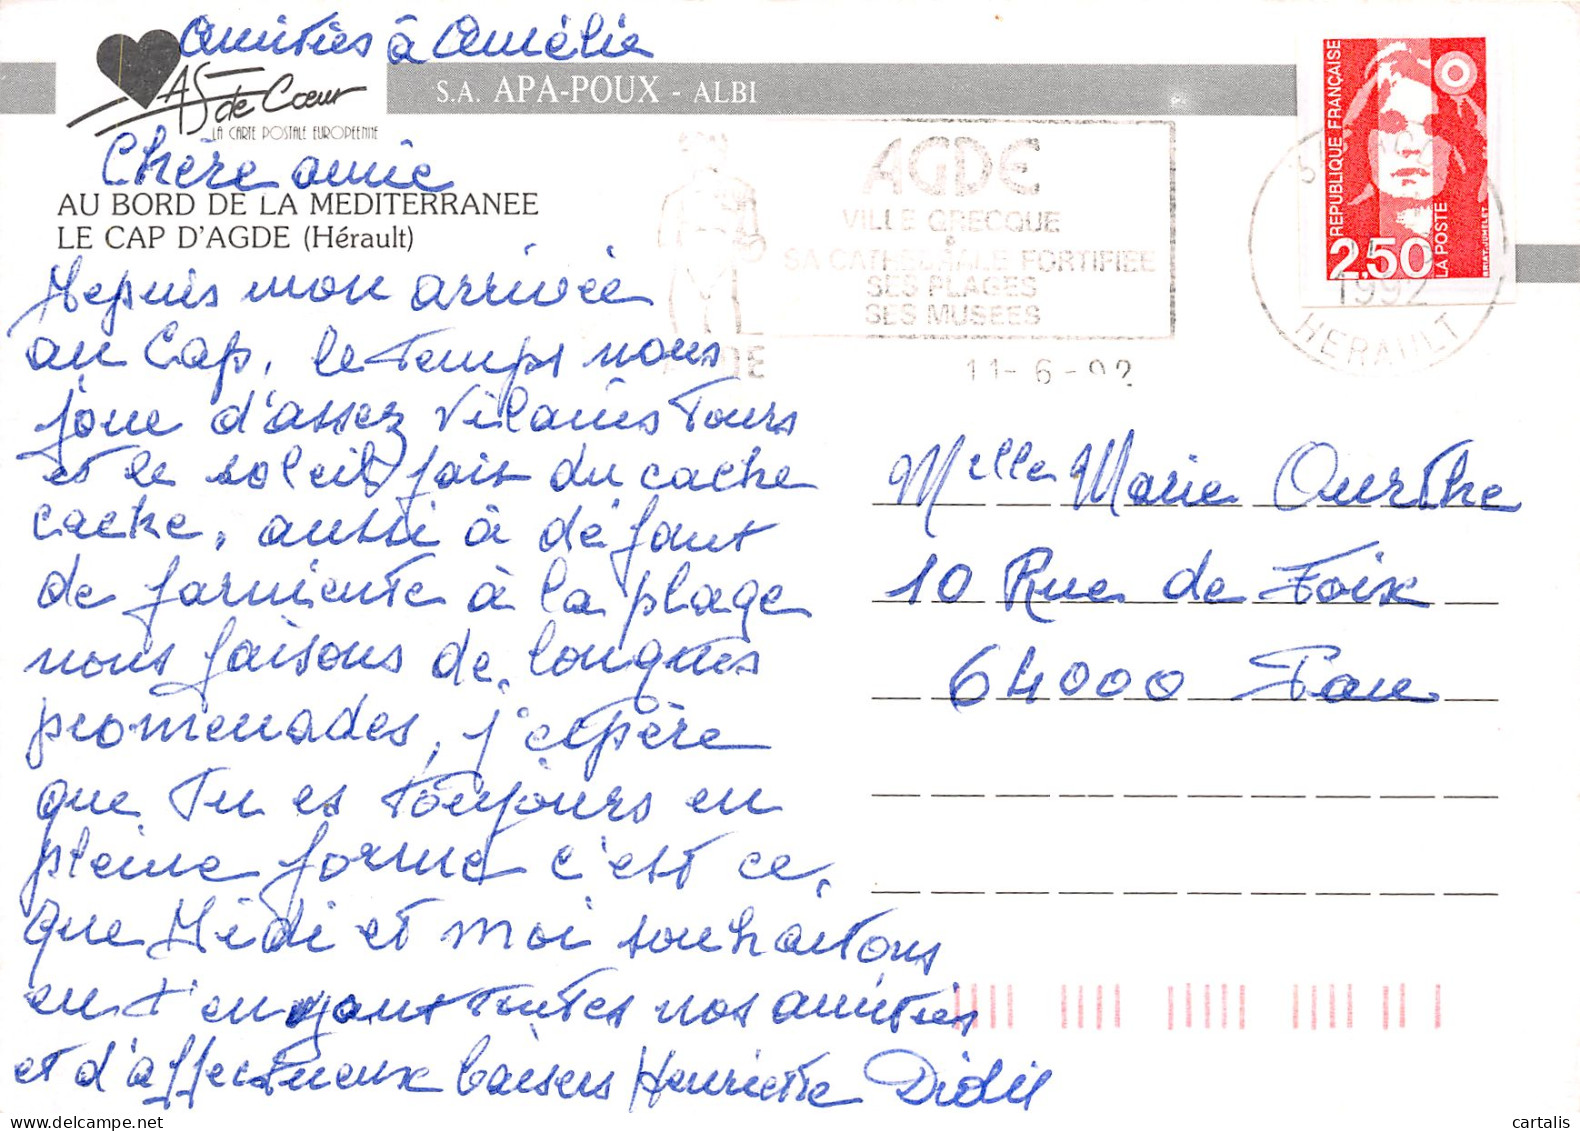 Amitiés à Amélie
AS de Cœur
LA CARTE POSTALE EUROPEENNE
S.A. APA-POUX - ALBI
Chère amie
AU BORD DE LA MEDITERRANEE
LE CAP D'AGDE (Hérault)
Depuis mon arrivée
au Cap, le temps nous
joue d'assez vilains tours
et le soleil fait du cache
cache, aussi à défaut
de farniente à la plage
nous faisons de longues
promenades, j'espère
que tu es toujours en
pleine forme c'est ce
que Didi et moi souhaitons
en t'envoyant toutes nos amitiés
et d'affectueux baisers Henriette
AGDE
VILLE GRECQUE
SA CATHEDRALE FORTIFIEE
SES PLAGES
SES MUSEES
11-6-92
1992
HERAULT
REPUBLIQUE FRANÇAISE
2,50
LA POSTE
BRIAT-JUMELET
Melle Marie Ourthe
10 Rue de Foix
64000 Pau
cartalis